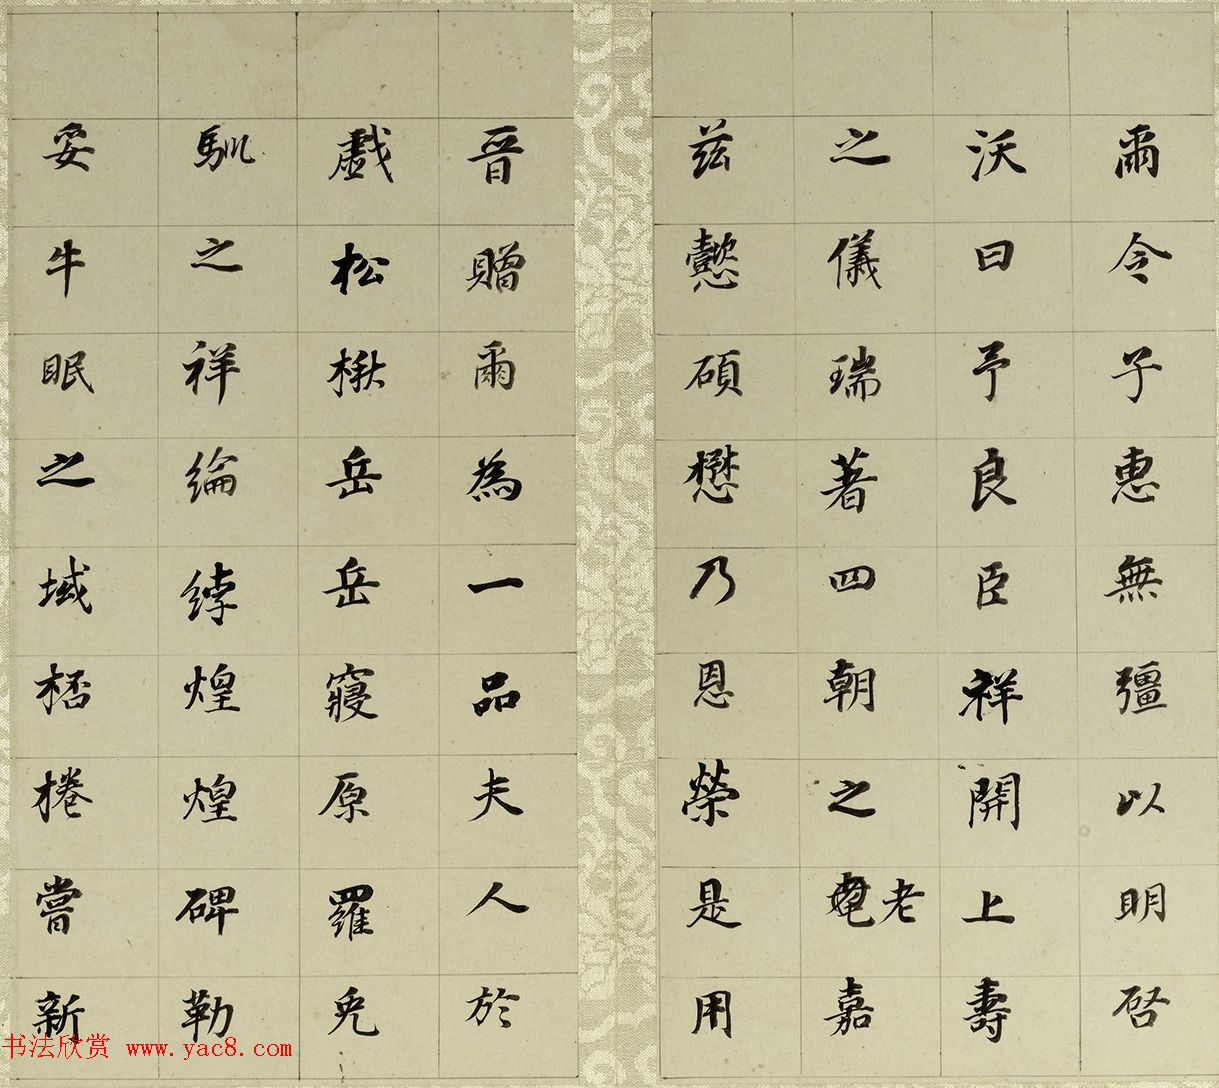 爾令子惠無彊以明啓
沃曰予良臣祥開上壽
之儀瑞著四朝之老嘉
茲懿碩懋乃恩榮是用
晉贈爾為一品夫人於
戲松楸岳岳寢原羅免
馴之祥綸綍煌煌碑勒
妥牛眠之域桮棬嘗新
书法欣赏 www.yac8.com